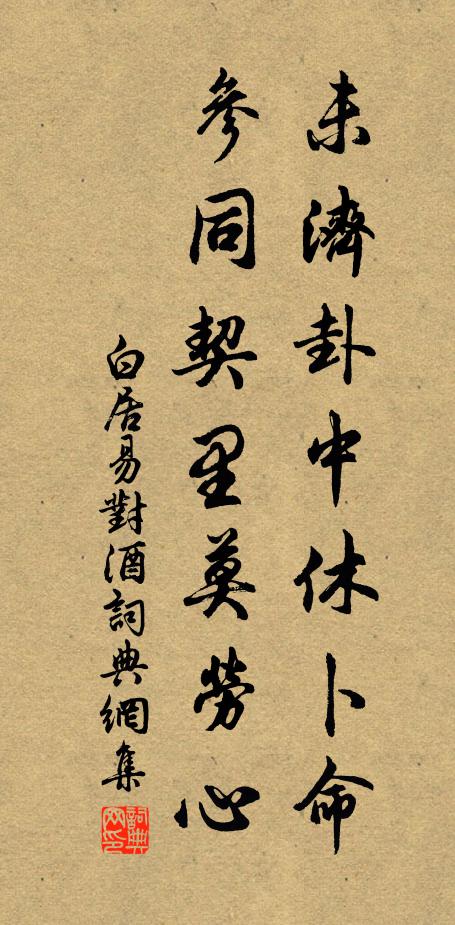 未濟卦中休卜命
參同契里莫勞心
白居易對酒詞典網集
詞典
網印